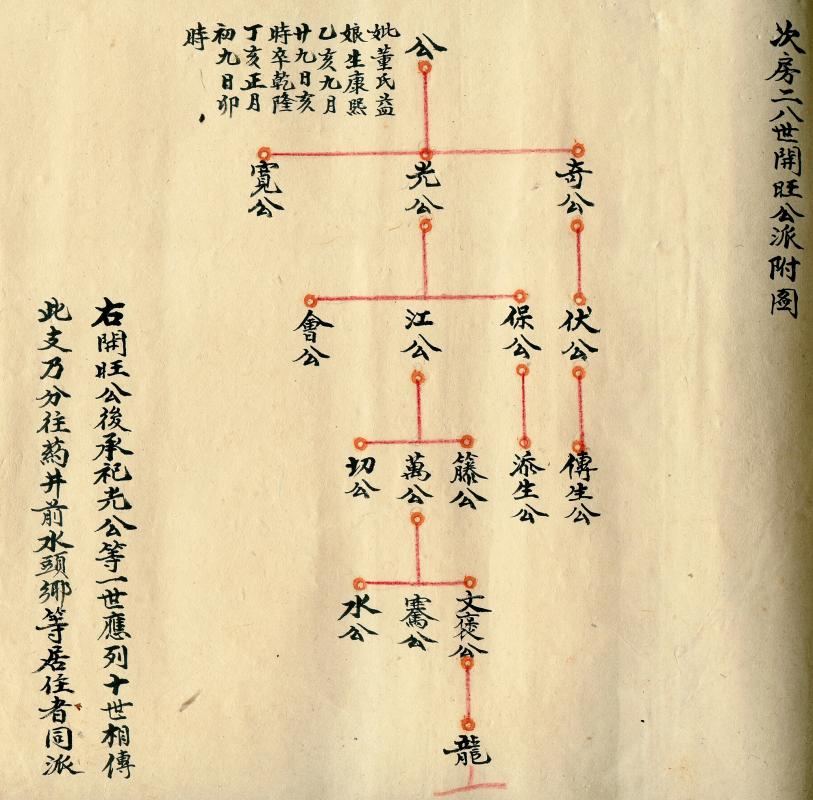 次房二八世開旺公派附圖
公
妣董氏益
娘生康熙
乙亥九月
廿九日亥
時卒乾隆
丁亥正月
初九日卯
時
奇公
光公
寬公
伏公
保公
江公
會公
傳生公
添生公
籐公
萬公
切公
文褒公
騫公
水公
龍
右開旺公後承祀光公等一世應列十世相傳
此支乃分往葯井前水頭鄉等居住者同派